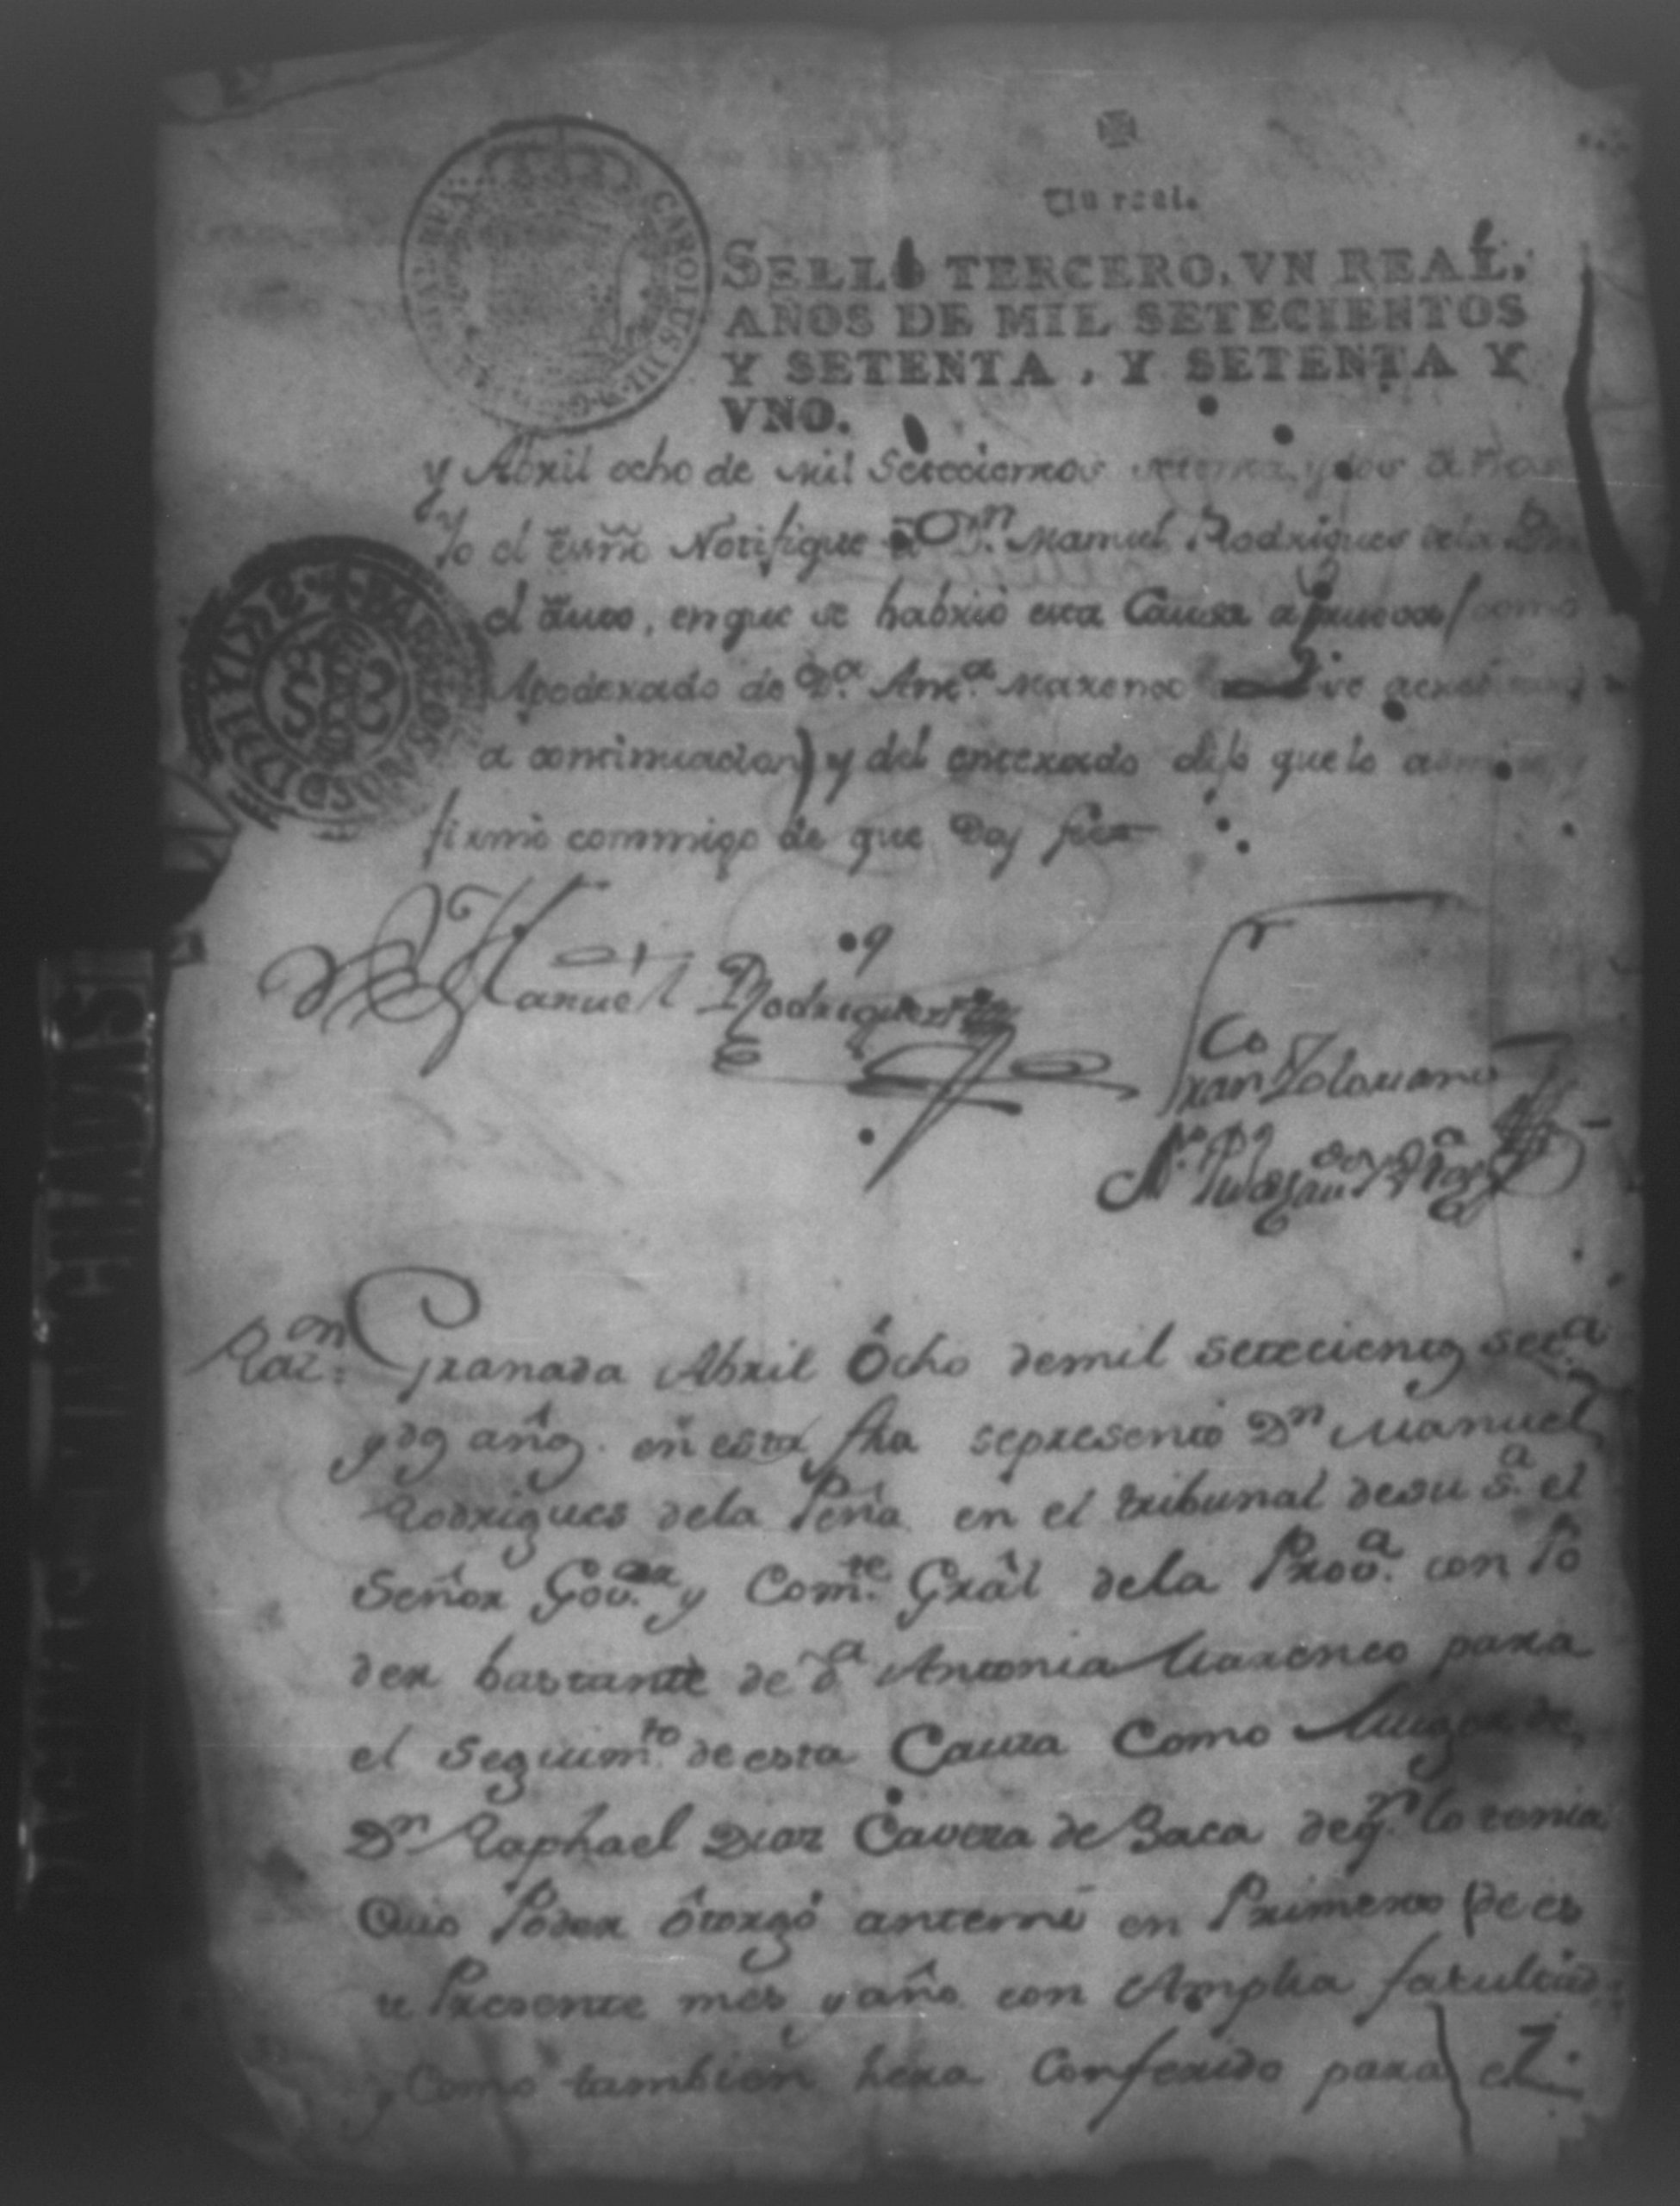 Un real.
SELLO TERCERO, VN REAL,
AÑOS DE MIL SETECIENTOS
Y SETENTA, Y SETENTA Y
VNO.
CAROLUS III D G
y Abril ocho de mil Setecientos setenta y dos años
Yo el essno Notifique a Dn. Manuel Rodrigues dela
el auto, en que se habrio esta Causa a prueva / como
Apoderado de Da. Anta. Marenco
a continuacion) y del enterado dijo que lo
firmó commigo de que Doy fee
Dn Manuel Rodriguez
Franco Solorzano
Razon. Granada Abril Ocho demil setecientos seta
y dos años. en esta fha sepresento Dn Manuel
Rodrigues dela Peña en el tribunal desu Sa. el
Señor Govor. y Comte. Gral dela Prova. con Po
der bastante de Da Antonia Marenco para
el seguimto. de esta Causa Como Muger de
Dn Raphael Diaz Caveza de Baca de qn. lo tenia
Cuio Poder otorgó antemi en Primero de es
te Presente mes y año con Amplia facultad
y Como tambien hera Conferido para el